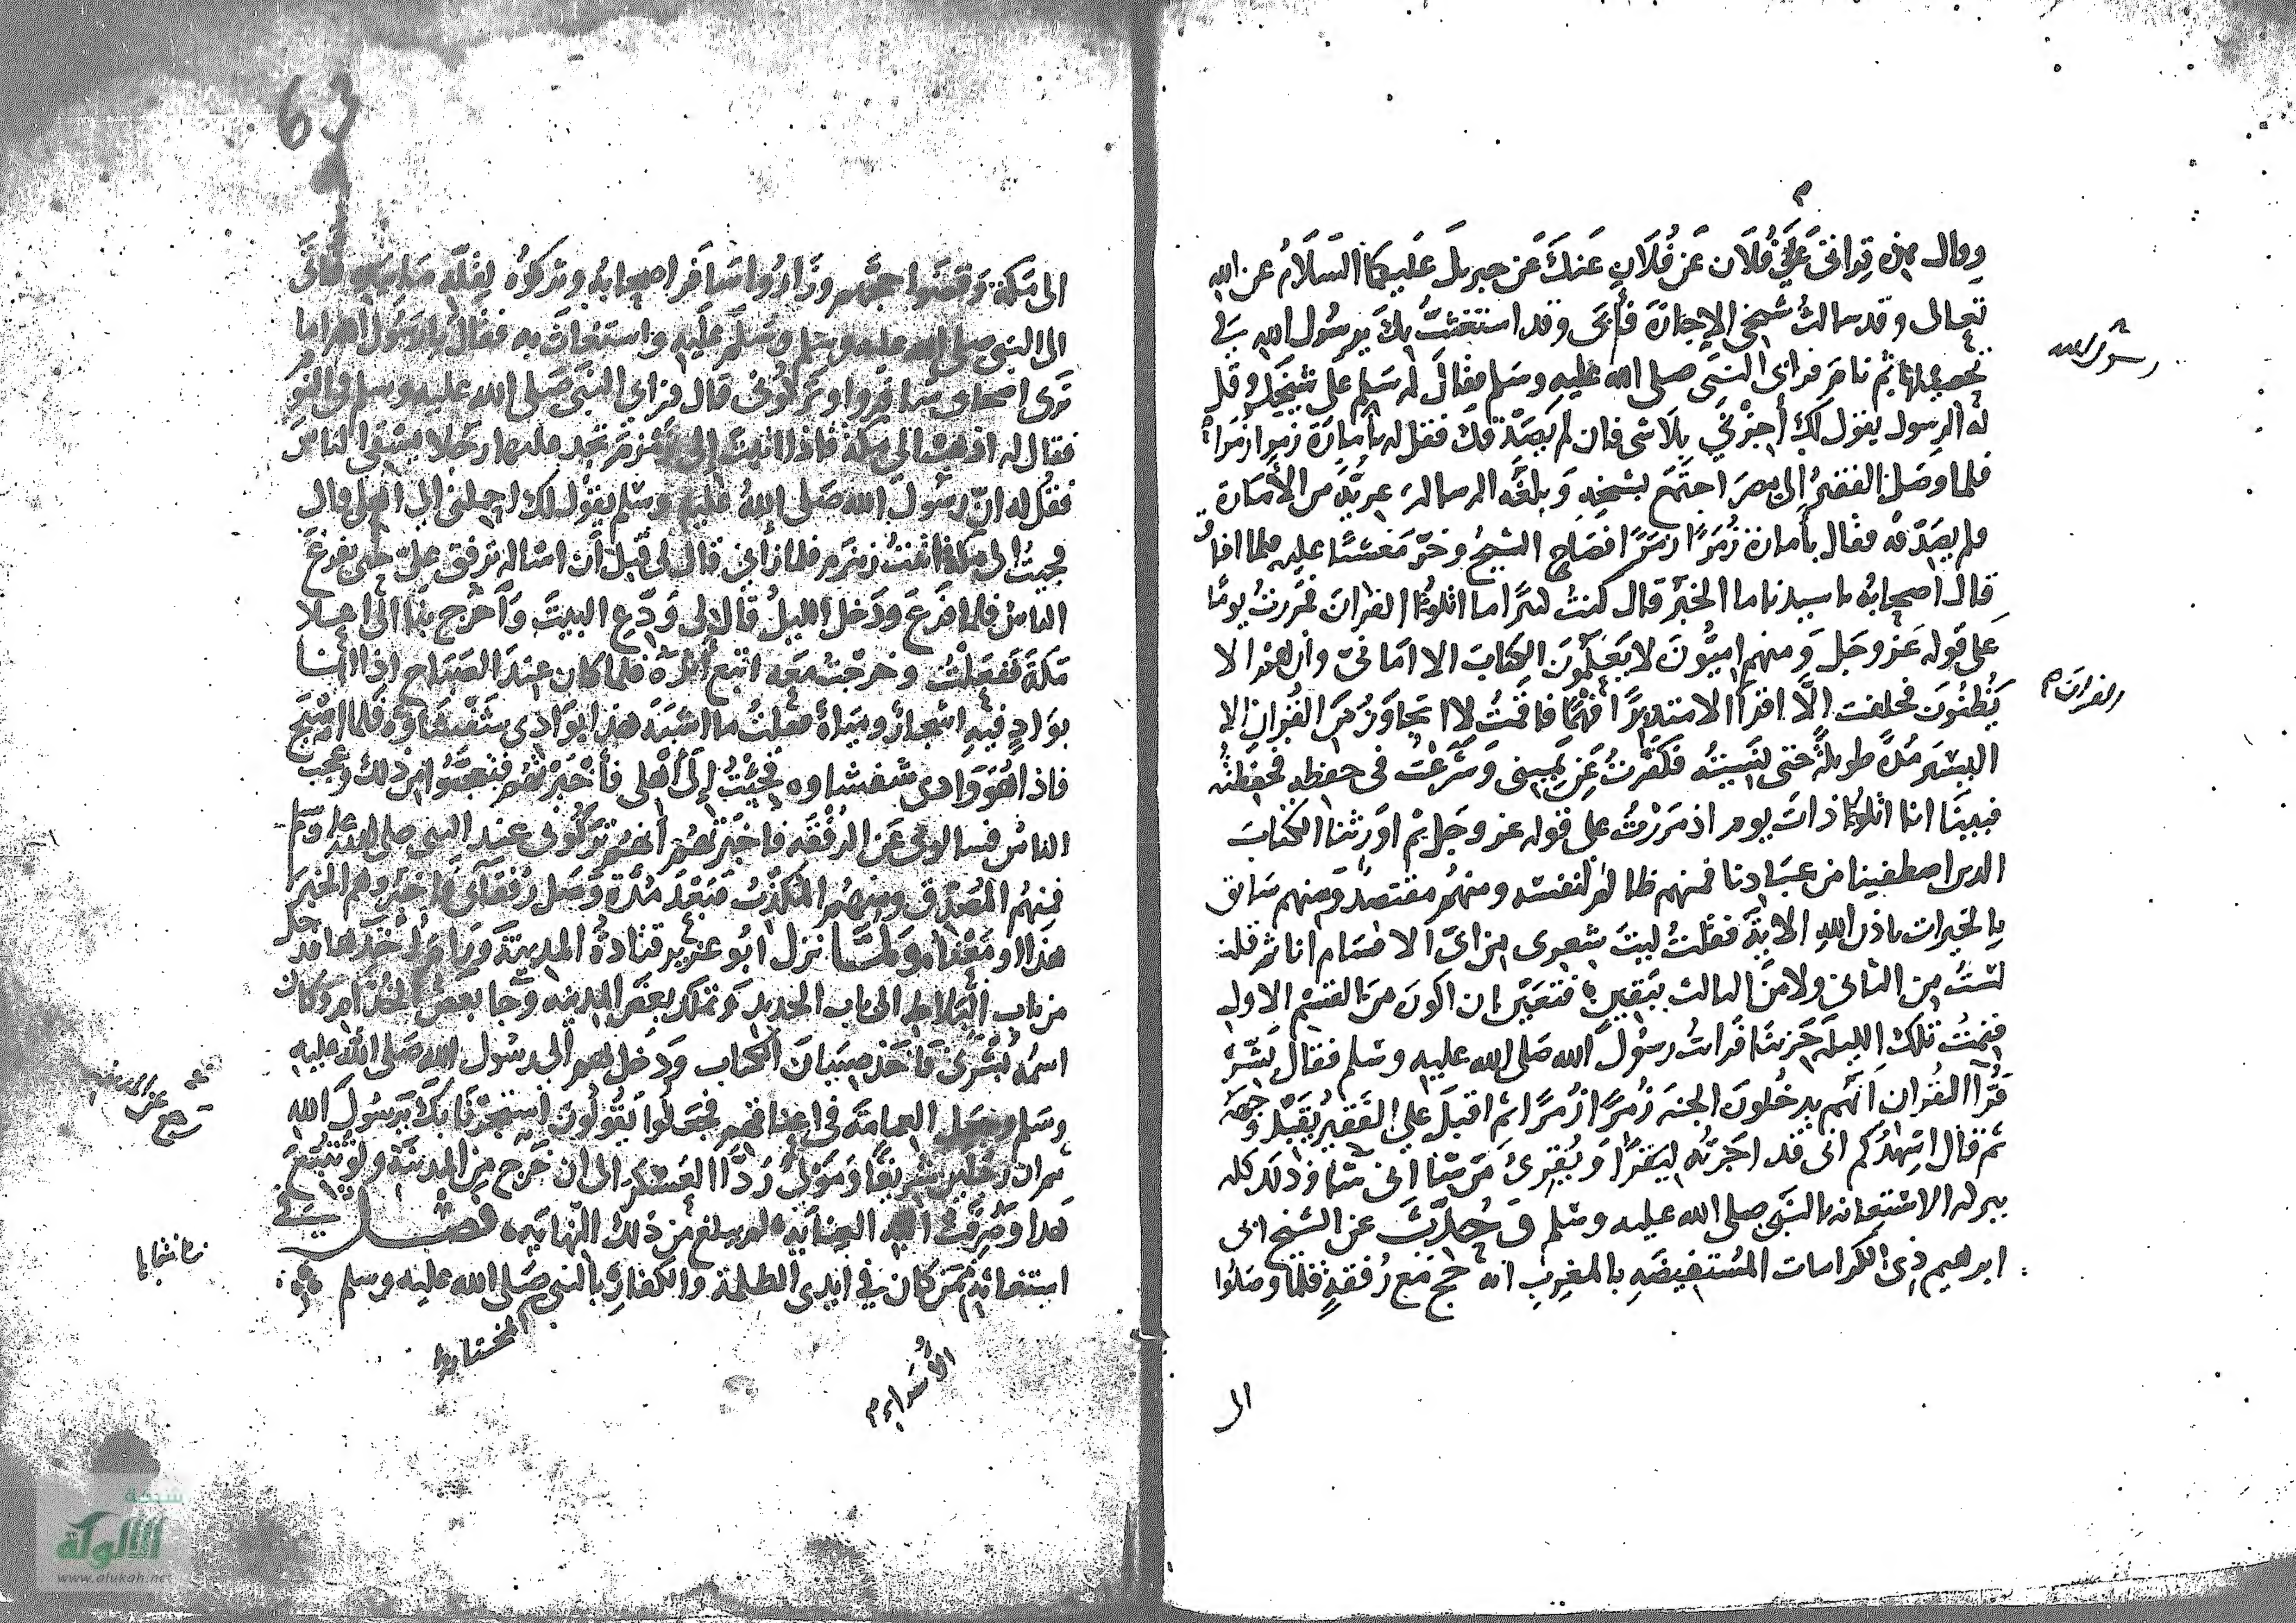 وقال هذه قراءتى على فلان عن فلان عنك عن جبريل عليكما السلام عن الله
تعالى وقد سالت شيخى الاجازة فأبى وقد استغثت بك يرسول الله فى
تحصيلها ثم نام فراى النبى صلى الله عليه وسلم فقال له سلم على شيخك وقل
له الرسول يقول لك أجزنى بلا شى فان لم يصدقك فقل له بامارة زمرا زمرا
فلما وصل الفقير إلى مصر اجتمع بشيخه وبلغه الرسالة عرية من الأمارة
فلم يصدقه فقال بأمارة زمرًا زمرًا فصاح الشيخ وخر مغشيا عليه فلما افاق
قال اصحابه ما سيدنا ما الخبر قال كنت كثيرًا ما اتلو القران فمررت يومًا
على قوله عز وجل ومنهم اميون لا يعلمون الكتاب الا امانى وان هم الا
يظنون فحلفت الا اقرا الا متدبرًا فهما فاقمت لا اتجاوز من القران الا
اليسير مدة طويلة حتى نسيته فكفرت عن يمينى وشرعت فى حفظه فحفظته
فبينا انا اتلو ذات يوم اذ مررت على قوله عز وجل ثم اورثنا الكتاب
الدين اصطفينا من عبادنا فمنهم ظالم لنفسه ومنهم مقتصد ومنهم سابق
بالخيرات باذن الله الاية فقلت ليت شعرى من اى الاقسام انا ثم قلت
لست من الثانى ولا من الثالث بيقين فتعين ان اكون من القسم الاول
فنمت تلك الليلة حزينا فرايت رسول الله صلى الله عليه وسلم فقال بشر
قرا القران انهم يدخلون الجنة زمرًا زمرًا ثم اقبل على الفقير يقبل وجهه
ثم قال اشهدكم انى قد اجزته ليقرا ويقرئ من شا انى شا وذلك كله
ببركه الاستغاثه بالنبى صلى الله عليه وسلم وحدثت عن الشيخ ابى
ابرهيم ذى الكرامات المستفيضه بالمغرب انه حج مع رفقة فلما وصلوا
الى
رسول الله
القران
63
الى مكة وقضوا حجهم وزاروا سافر اصحابه وتركوه لقلة ما بيده فاتى
الى النبى صلى الله عليه وسلم وسلم عليه واستغاث به فقال يا رسول الله اما
ترى اصحابى سافروا وتركونى قال فراى النبى صلى الله عليه وسلم فى النوم
فقال له اذهب الى مكة فاذا اتيت إلى زمزم تجد عليها رجلا يسقى الناس
فقل له ان رسول الله صلى الله عليه وسلم يقول لك احملنى الى اهلى قال
فجيت الى مكة فاتيت زمزم فلما رأنى قال لى قبل أن اساله ترفق على حتى يفرغ
الناس فلما فرغ ودخل الليل قال لى ودع البيت واخرج بنا الى اعلا
مكة ففعلت وخرجت معه اتبع أثره فلما كان عند الصباح اذا انا
بواد فيه اشجار ومياه فقلت ما اشبه هذا بوادى شفشاوه فلما اصبح
فاذا هو وادى شفشاوه فجيت إلى اهلى فأخبرتهم فتعجبوا من ذلك وعجب
الناس فسالونى عن الرفقه فاخبرتهم انهم تركونى عند النبى صلى الله عليه وسلم
فمنهم المصدق ومنهم المكذب فبعد مدة وصل رفقاى فاخبروهم الخبر
هذا او معناه ولما نزل ابو عزيز قتادة المدينة
من باب البلاط الى باب الحديد وتملك بعض المدينه وجا بعض الخدام وكان
اسمه بشرى فاخذ صبيان الكتاب ودخل بهم الى رسول الله صلى الله عليه
وسلم وجعل العمامة فى اعناقهم فجعلوا يقولون استجرنا بك يرسول الله
العسكر الى ان خرج من المدينة
هذا فصل فى
استغاثة من كان فى ايدى الظلمة والكفار بالنبى صلى الله عليه وسلم
المختار
الأسرا
شبكة
الألوكة
www.alukah.net